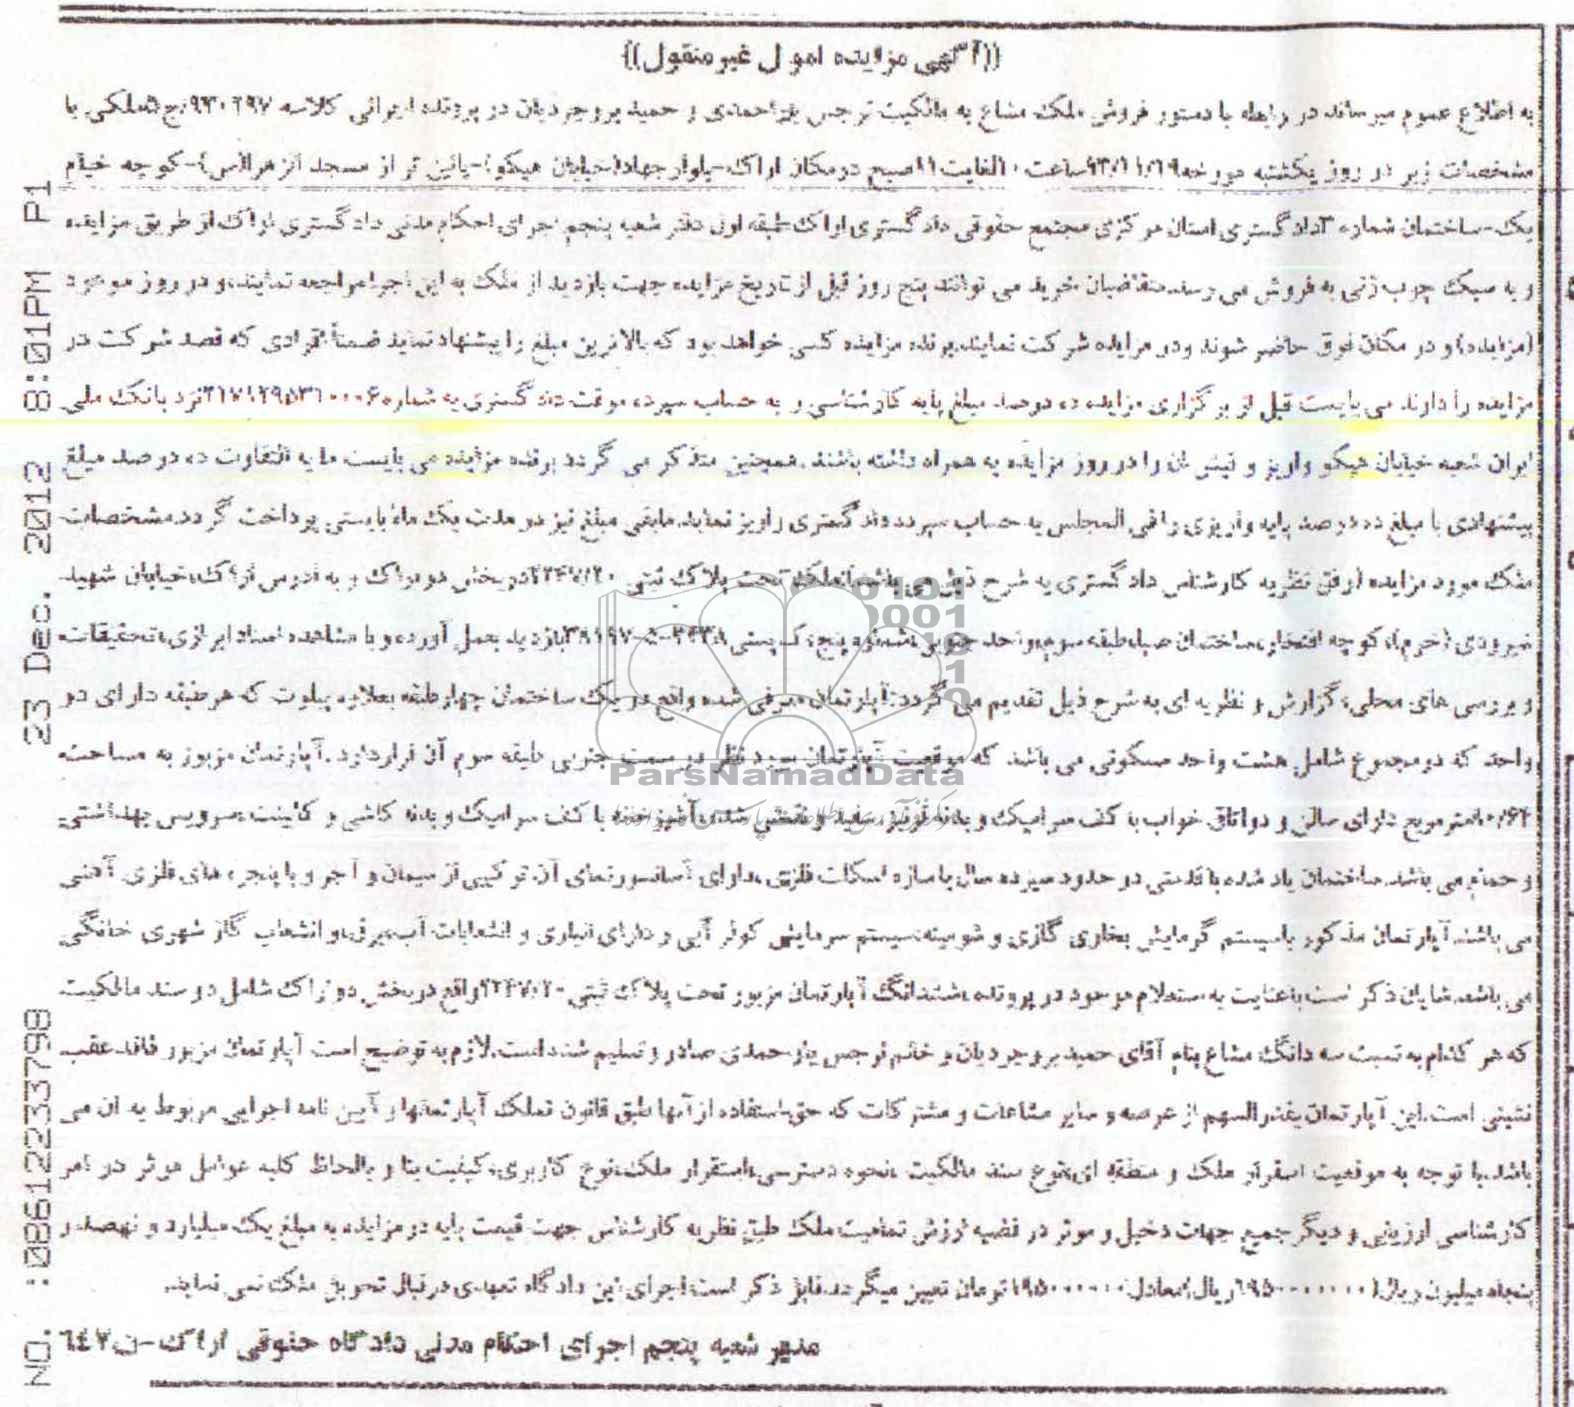 ((آگهی مزایده اموال غیر منقول))
به اطلاع عموم میرساند در رابطه با دستور فروش ملک مشاع به مالکیت نرجس یاراحمدی و حمید بروجردیان در پرونده اجرائی کلاسه ملکی با
مشخصات زیر در روز یکشنبه مورخه ساعت ۱۰الغایت۱۱صبح درمکان اراک-بلوار جهاد(خیابان هپکو)-پائین تر از مسجد الزهرا(س)-کوچه خیام
یک-ساختمان شماره ۲دادگستری استان مرکزی مجتمع حقوقی دادگستری اراک طبقه اول دفتر شعبه پنجم اجرای احکام مدنی دادگستری اراک از طریق مزایده
و به سبک چوب زنی به فروش می رسد.متقاضیان خرید می توانند پنج روز قبل از تاریخ مزایده جهت بازدید از ملک به این اجرا مراجعه نمایند.و در روز موعود
(مزایده)و در مکان فوق حاضر شوند ودر مزایده شرکت نمایند.برنده مزایده کسی خواهد بود که بالاترین مبلغ را پیشنهاد نماید ضمناً افرادی که قصد شرکت در
مزایده را دارند می بایست قبل از برگزاری مزایده ده درصد مبلغ پایه کارشناسی را به حساب سپرده موقت دادگستری به شماره ۲۱۷۱۲۹۵۳۱۰۰۰۶نزد بانک ملی
ایران شعبه خیابان هپکو واریز و فیش آن را در روز مزایده به همراه داشته باشند.همچنین متذکر می گردد برنده مزایده می بایست ما به التفاوت ده درصد مبلغ
پیشنهادی با مبلغ ده درصد پایه واریزی را فی المجلس به حساب سپرده دادگستری واریز نماید.مابقی مبلغ نیز در مدت یک ماه بایستی پرداخت گردد.مشخصات
ملک مورد مزایده از فق نظریه کارشناس دادگستری به شرح ذیل می باشد تحت پلاک ثبتی در بخش دو اراک و به آدرس اراک،خیابان شهید
شیرودی (خرم)،کوچه افتخار،ساختمان صبا،طبقه سوم،واحد جنوبی،شماره پنج، کدپستی بازدید بعمل آورده و با مشاهده اسناد ابرازی،تحقیقات
و بررسی های محلی، گزارش و نظریه ای به شرح ذیل تقدیم می گردد:آپارتمان معرفی شده واقع در یک ساختمان چهار طبقه بعلاوه پیلوت که هر طبقه دارای دو
واحد که درمجموع شامل هشت واحد مسکونی می باشد که موقعیت آپارتمان مورد نظر در سمت جنوبی طبقه سوم آن قراردارد.آپارتمان مزبور به مساحت
مترمربع دارای سالن و دواتاق خواب با کف سرامیک و بدنه سفید و نقاشی شده،آشپزخانه با کف سرامیک و بدنه کاشی و کابینت،سرویس بهداشتی
و حمام می باشد.ساختمان یاد شده با قدمتی در حدود سیزده سال با سازه اسکلت فلزی،دارای آسانسور،نمای آن ترکیبی از سیمان و آجر و با پنجره های فلزی آهنی
می باشد.آپارتمان مذکور با سیستم گرمایش بخاری گازی و شومینه،سیستم سرمایش کولر آبی و دارای انباری و انشعابات آب،برق،و انشعاب گاز شهری خانگی
می باشد.شایان ذکر است باعنایت به استعلام موجود در پرونده،ششدانگ آپارتمان مزبور تحت پلاک ثبتی واقع در بخش دو اراک شامل دو سند مالکیت
که هر کدام به نسبت سه دانگ مشاع بنام آقای حمید بروجردیان و خانم نرجس یاراحمدی صادر و تسلیم شده است.لازم به توضیح است آپارتمان مزبور فاقد عقب
نشینی است.این آپارتمان بقدرالسهم از عرصه و سایر مشاعات و مشترکات که حق استفاده از آنها طبق قانون تملک آپارتمانها و آیین نامه اجرایی مربوط به آن می
باشد.با توجه به موقعیت استقرار ملک و منطقه ای،نوع سند مالکیت ،نحوه دسترسی،استقرار ملک،نوع کاربری،کیفیت بنا و بالحاظ کلیه عوامل موثر در امر
کارشناسی ارزیابی و دیگر جمیع جهات دخیل و موثر در قضیه ارزش تمامیت ملک طبق نظریه کارشناس جهت قیمت پایه در مزایده به مبلغ یک میلیارد و نهصد و
پنجاه میلیون ریال( ۱۹۵۰۰۰۰۰۰۰ریال)معادل۱۹۵۰۰۰۰۰۰تومان تعیین میگردد.قابل ذکر است،اجرای این دادگاه تعهدی در قبال تحویل ملک نمی نماید.
مدیر شعبه پنجم اجرای احکام مدنی دادگاه حقوقی اراک-ن
ParsNamadData
0101
0001
NO. :08612233798 23 Dec. 2012 8:01PM P1